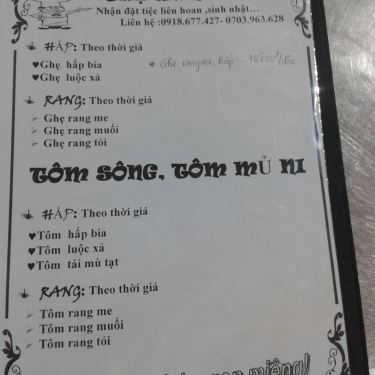 Nhận đặt tiệc liên hoan ,sinh nhật…
Liên hệ :0918.677.427- 0703.963.628
HẤP: Theo thời giá
Ghẹ hấp bia
Ghẹ luộc xả
RANG: Theo thời giá
Ghẹ rang me
Ghẹ rang muối
Ghẹ rang tỏi
TÔM SÔNG, TÔM MỦ NI
HẤP: Theo thời giá
Tôm hấp bia
Tôm luộc xả
Tôm tái mù tạt
RANG: Theo thời giá
Tôm rang me
Tôm rang muối
Tôm rang tỏi
miệng!